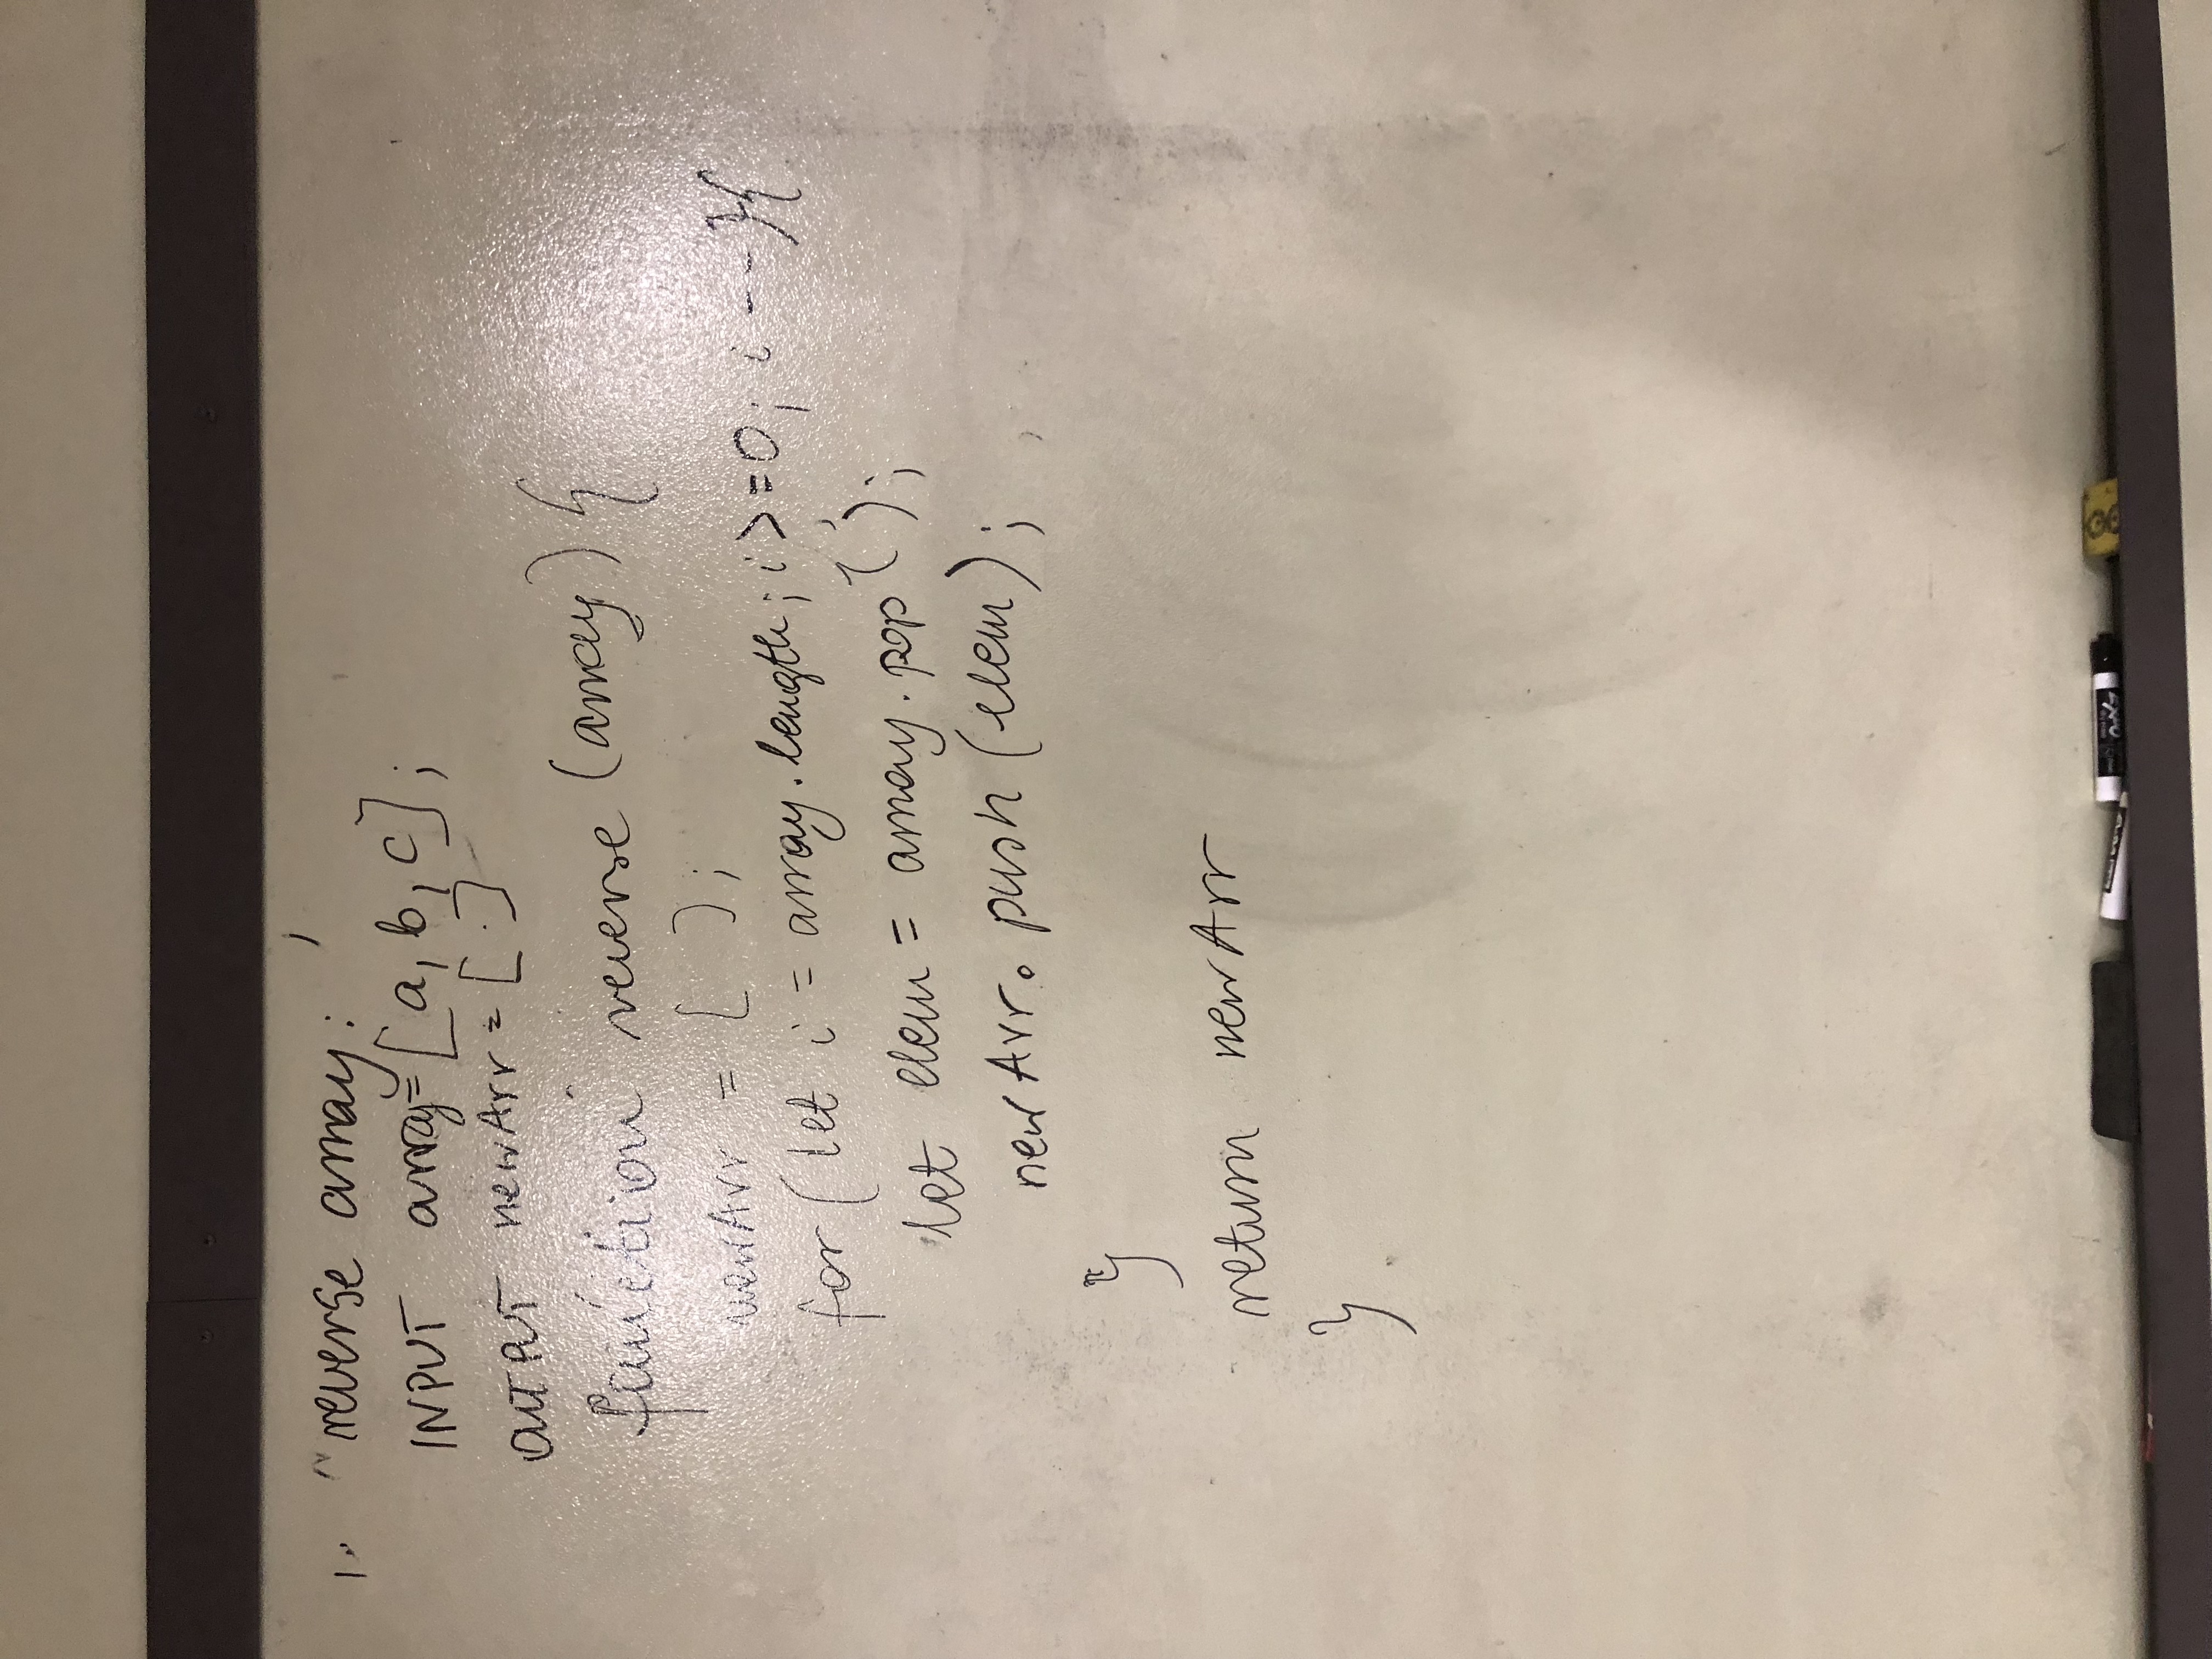 1. reverse array:
INPUT array=[a, b, c];
OUTPUT newArr = [ ]
function reverse (array) {
newArr = [ ];
for (let i = array.length; i >=0; i --){
let elem = array.pop();
newArr.push(elem);
}
return newArr
}
EXPO